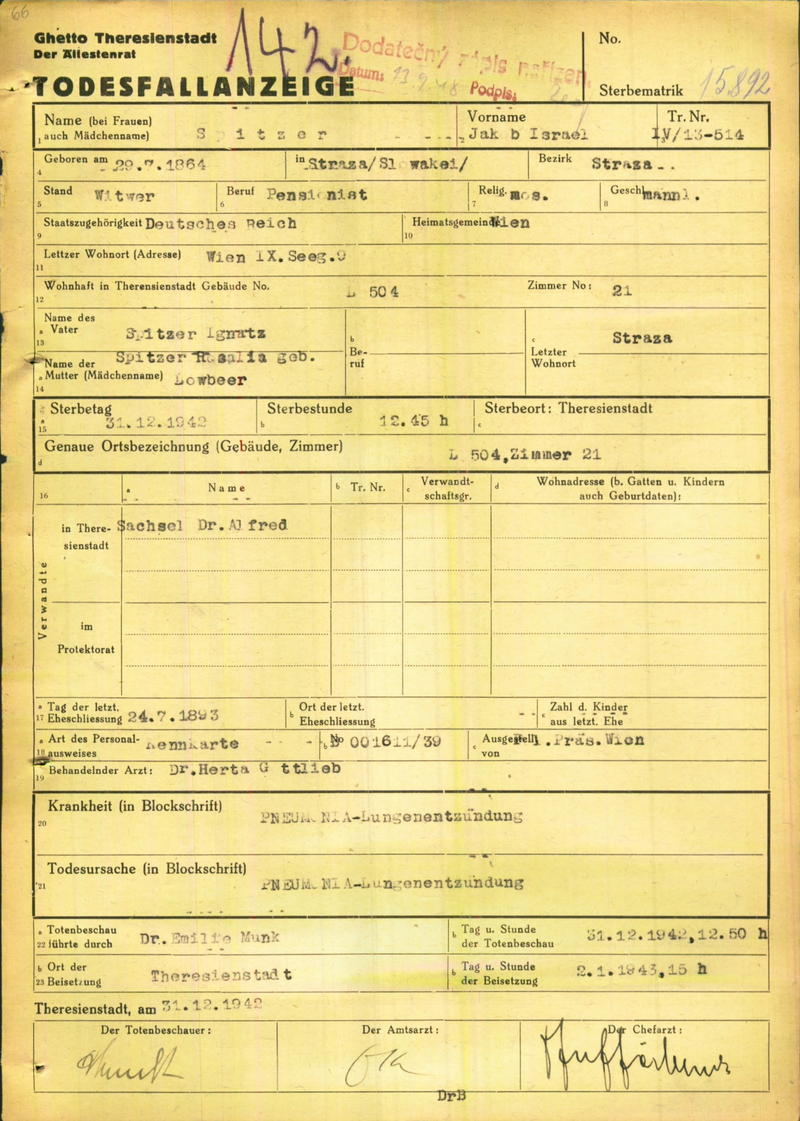 66
Ghetto Theresienstadt
Der Ältestenrat
142.
Dodatečný zápis nařízen
Datum: 13 9 48 Podpis:
No.
TODESFALLANZEIGE
Sterbematrik 15892
Name (bei Frauen) Vorname Tr. Nr.
1 auch Mädchenname) S p i tzer - - .. Jak b Israel IV/13-514
Geboren am 29.7.1864 in Straza/Sl wakei/ Bezirk Straza - .
4
Stand Witwer Beruf Pensi nist Relig. mos. Geschl männl.
5 6 7 8
Staatszugehörigkeit Deutsches Reich Heimatsgemeinde Wien
9 10
Lettzer Wohnort (Adresse) Wien IX.Seeg.9
11
Wohnhaft in Therensienstadt Gebäude No. L 504 Zimmer No: 21
12
Name des
a Vater Spitzer Ignatz b c Straza
13 Be- Letzter
Name der Spitzer Rosalia geb. ruf Wohnort
a Mutter (Mädchenname) Lowbeer
14
Sterbetag Sterbestunde Sterbeort: Theresienstadt
a 31.12.1942 b 12.45 h c
15
Genaue Ortsbezeichnung (Gebäude, Zimmer)
d L 504,Zimmer 21
16 a Name b Tr. Nr. c Verwandt-schaftsgr. d Wohnadresse (b. Gatten u. Kindern
auch Geburtdaten):
Verwandte
in There- Sachsel Dr.Alfred
sienstadt
im
Protektorat
a Tag der letzt. Ort der letzt. Zahl d. Kinder
17 Eheschliessung 24.7.1893 b Eheschliessung - - c aus letzt. Ehe
a Art des Personal- Kennkarte - - - b No 001611/39 c Ausgestellt .Präs.Wien
18 ausweises von
Behandelnder Arzt: Dr.Herta G ttlieb
19
Krankheit (in Blockschrift)
20 PNEUM NIA-Lungenentzündung
Todesursache (in Blockschrift)
21 PNEUM NIA-Lungenentzündung
a Totenbeschau Dr.Emilie Munk b Tag u. Stunde 31.12.1942,12.50 h
22 führte durch der Totenbeschau
b Ort der Theresienstadt b Tag u. Stunde 2.1.1943,15 h
23 Beisetzung der Beisetzung
Theresienstadt, am 31.12.1942
Der Totenbeschauer: Der Amtsarzt: Der Chefarzt:
DrB